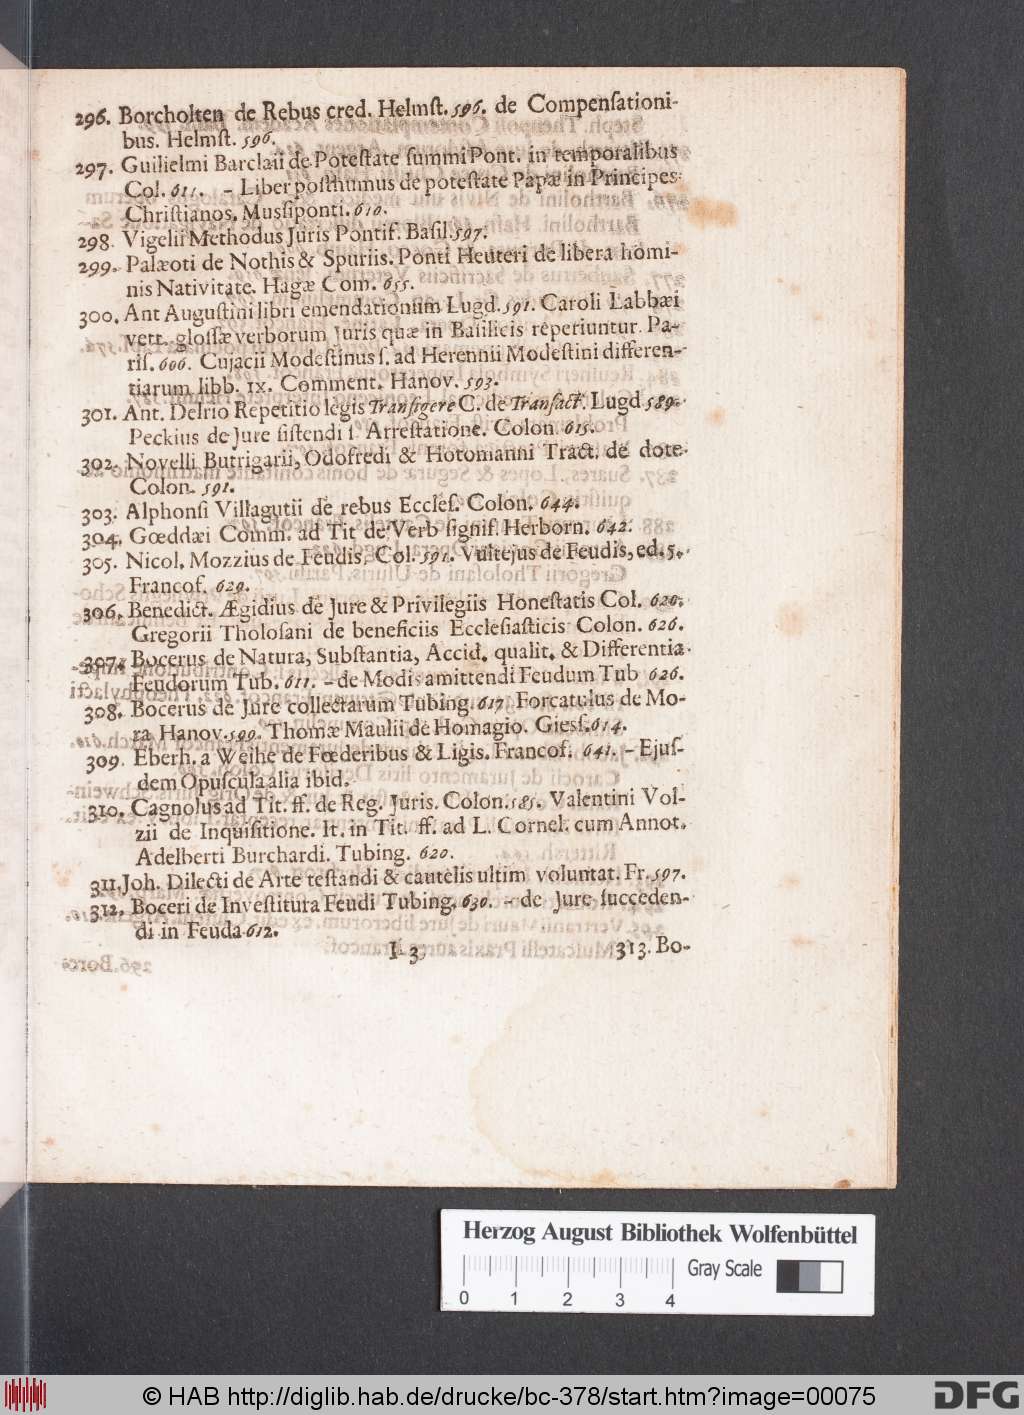 296. Borcholten de Rebus cred. Helmſt. 596. de Compenſationi-
bus. Helmſt. 596.
297. Guilielmi Barclaii de Poteſtate ſummi Pont. in temporalibus
Col. 611. – Liber poſthumus de poteſtate Papæ in Principes
Chriſtianos. Muſſiponti. 610.
298. Vigelii Methodus Juris Pontif. Baſil. 597.
299. Palæoti de Nothis & Spuriis. Ponti Heuteri de libera homi-
nis Nativitate. Hagæ Com. 655.
300. Ant Auguſtini libri emendationum Lugd. 591. Caroli Labbæi
vett. gloſſæ verborum Juris quæ in Baſilicis reperiuntur. Pa-
riſ. 606. Cujacii Modeſtinus ſ. ad Herennii Modeſtini differen-
tiarum libb. IX. Comment. Hanov. 593.
301. Ant. Delrio Repetitio legis Tranſigere C. de Tranſact. Lugd 589.
Peckius de Jure ſiſtendi ſ. Arreſtatione. Colon. 615.
302. Novelli Butrigarii, Odofredi & Hotomanni Tract. de dote
Colon. 591.
303. Alphonſi Villagutii de rebus Eccleſ. Colon. 644.
304. Gœddæi Comm. ad Tit de Verb ſignif. Herborn. 642.
305. Nicol. Mozzius de Feudis, Col. 591. Vultejus de Feudis, ed. 5.
Francof. 629.
306. Benedict. Ægidius de Jure & Privilegiis Honeſtatis Col. 620.
Gregorii Tholoſani de beneficiis Eccleſiaſticis Colon. 626.
307. Bocerus de Natura, Subſtantia, Accid. qualit. & Differentia
Feudorum Tub. 611. – de Modis amittendi Feudum Tub 626.
308. Bocerus de Jure collectarum Tubing. 617. Forcatulus de Mo-
ra Hanov. 599. Thomæ Maulii de Homagio. Gieſſ. 614.
309. Eberh. a Weihe de Fœderibus & Ligis. Francof. 641. – Ejuſ-
dem Opuſcula alia ibid.
310. Cagnolus ad Tit. ff. de Reg. Juris. Colon. 585. Valentini Vol-
zii de Inquiſitione. It. in Tit. ff. ad L. Cornel. cum Annot.
Adelberti Burchardi. Tubing. 620.
311. Joh. Dilecti de Arte teſtandi & cautelis ultim voluntat. Fr. 597.
312. Boceri de Inveſtitura Feudi Tubing. 630. – de Jure ſucceden-
di in Feuda 612.
I 3 313. Bo-
Herzog August Bibliothek Wolfenbüttel
Gray Scale
0 1 2 3 4
© HAB http://diglib.hab.de/drucke/bc-378/start.htm?image=00075
DFG